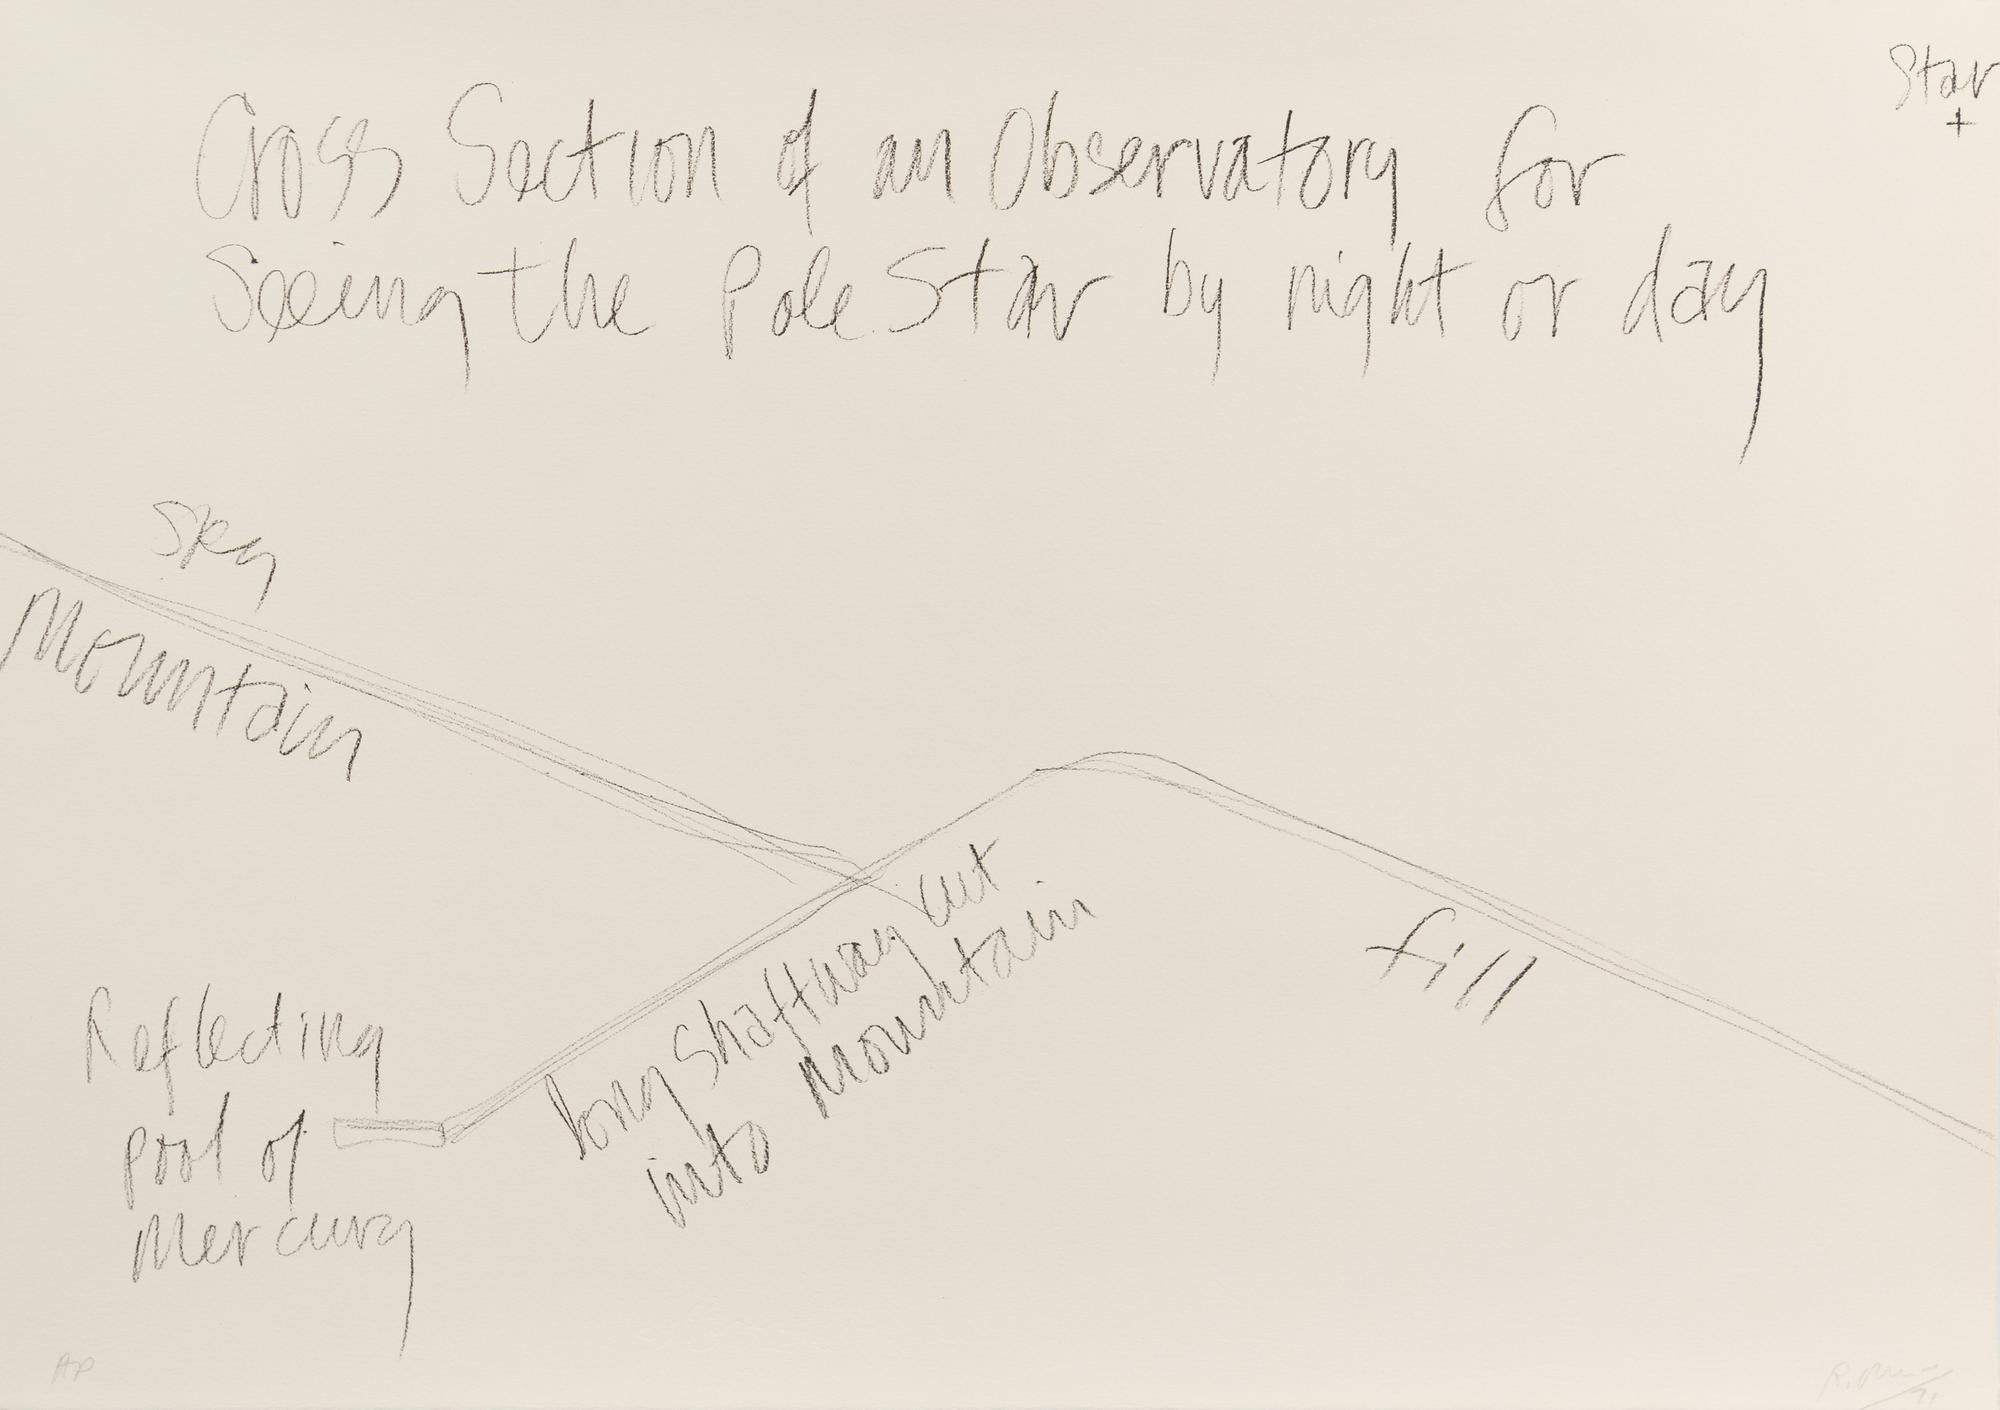 Star
+
Cross Section of an Observatory for
Seeing the Pole Star by night or day
Sky
Mountain
long shaftway cut
into mountain
fill
Reflecting
pool of
Mercury
AP
R.
71